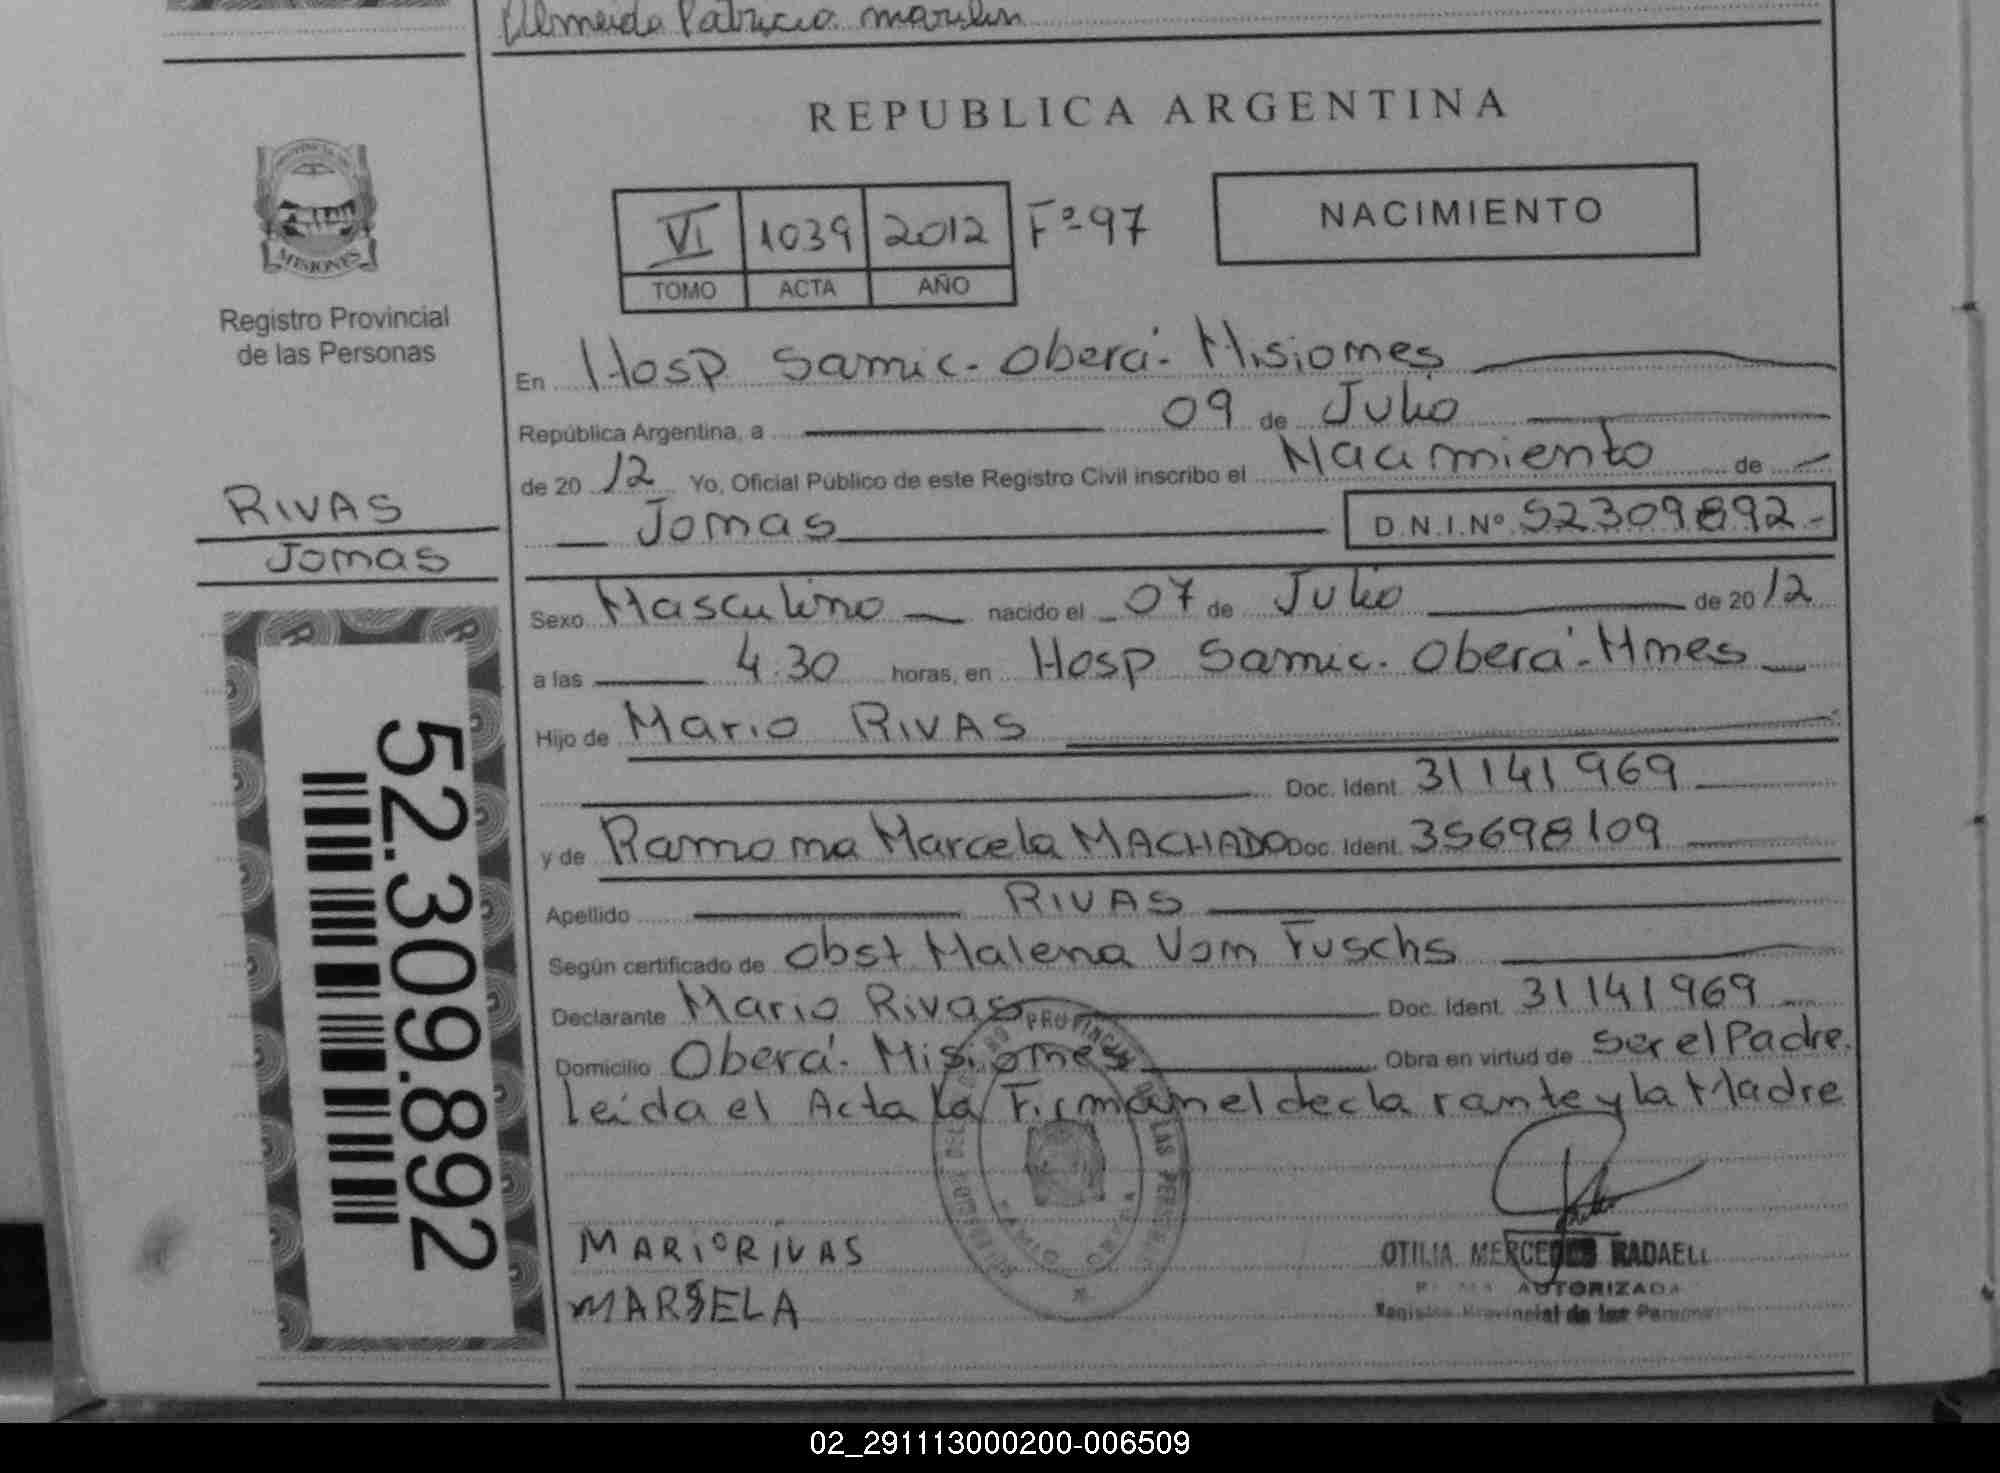 Almeida Patricia marilin
REPUBLICA ARGENTINA
PROVINCIA DE
MISIONES
Registro Provincial
de las Personas
VI 1039 2012 Fº 97
TOMO ACTA AÑO
NACIMIENTO
En Hosp. Samic. Oberá. Misiones
República Argentina, a 09 de Julio
de 20 12 Yo, Oficial Público de este Registro Civil inscribo el Nacimiento de
Jomas D.N.I.Nº 52309892.-
RIVAS
Jomas
Sexo Masculino nacido el 07 de Julio de 20 12
a las 4.30 horas, en Hosp Samic. Oberá. Mnes
Hijo de Mario RIVAS
Doc. Ident. 31141969
y de Ramona Marcela MACHADO Doc. Ident. 35698109
Apellido RIVAS
Según certificado de Obst Malena Von Fuschs
Declarante Mario Rivas Doc. Ident. 31141969
Domicilio Oberá. Misiones Obra en virtud de Ser el Padre.
Leida el Acta la Firman el declarante y la Madre
52.309.892
MARIO RIVAS
MARSELA
OTILIA MERCEDES RADAELL
AUTORIZADA
Registro Provincial de las Personas
02_291113000200-006509